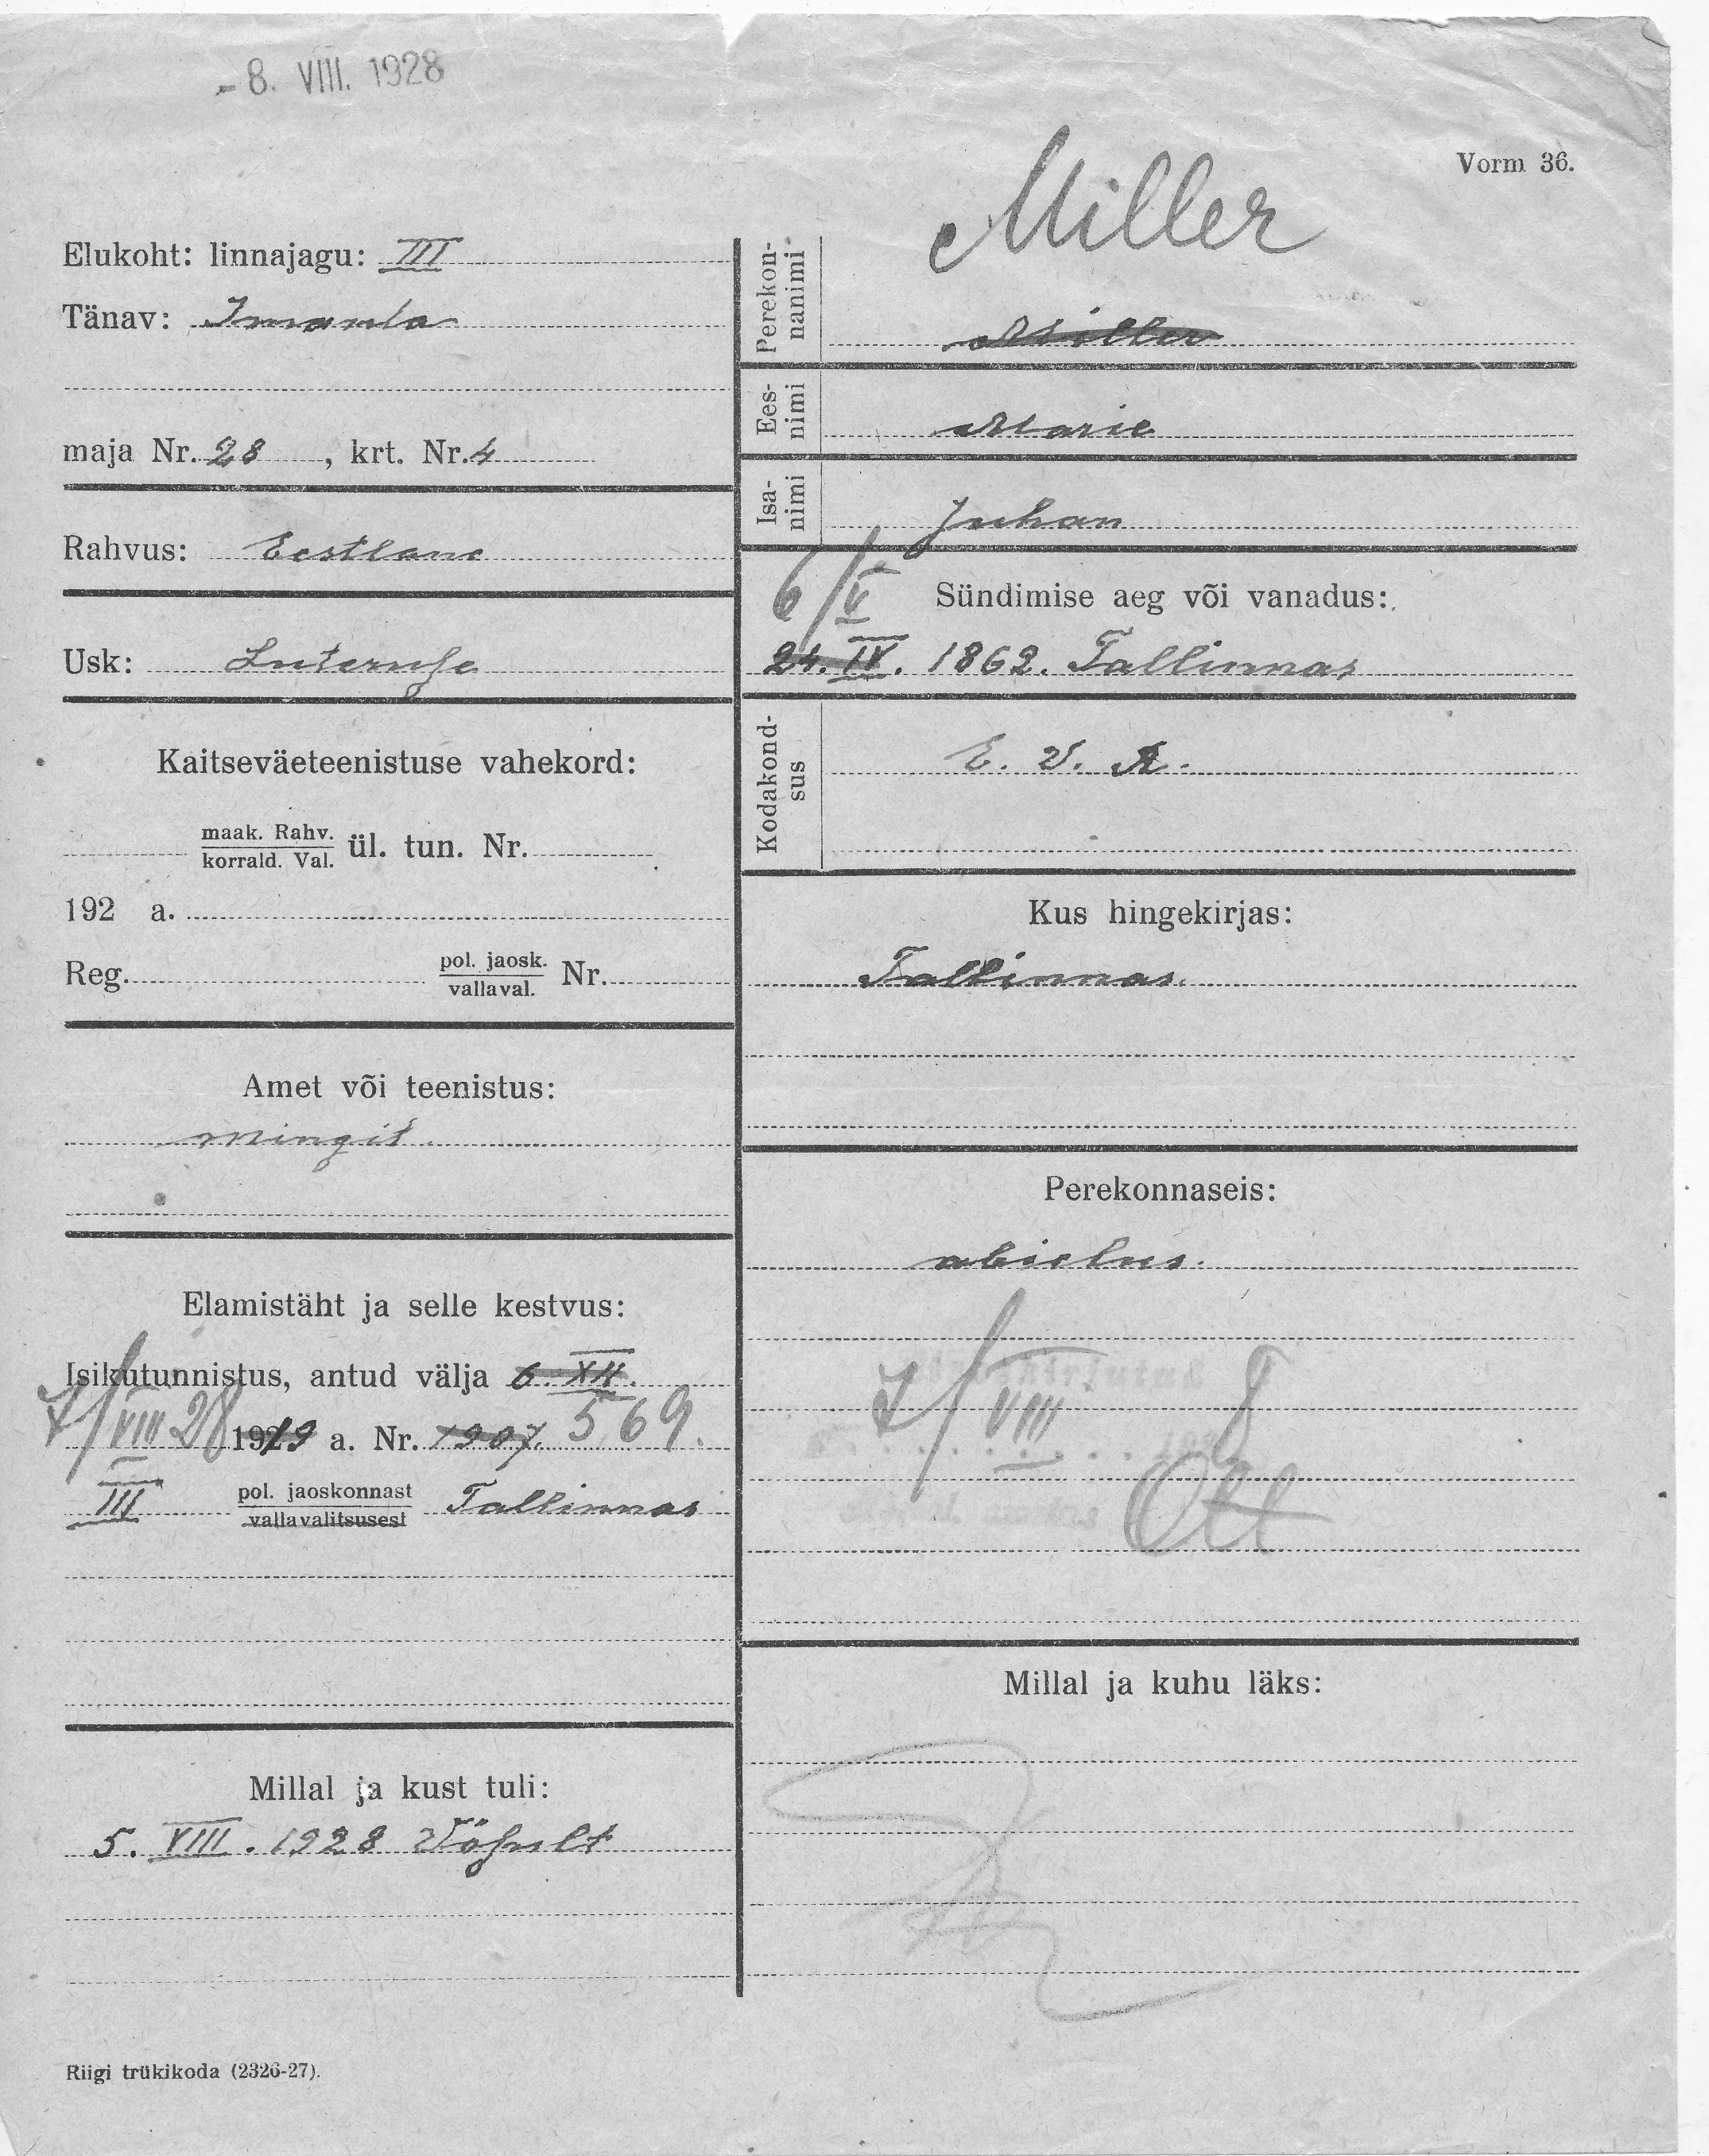 - 8. VIII. 1928
Vorm 36.
Elukoht: linnajagu: III
Tänav: Imanta
maja Nr. 28 , krt. Nr. 4
Rahvus: Eestlane
Usk: Luteruse
Kaitseväeteenistuse vahekord:
maak. Rahv.
korrald. Val. ül. tun. Nr.
192 a.
Reg. pol. jaosk. Nr.
vallaval.
Amet või teenistus:
mingit
Elamistäht ja selle kestvus:
Isikutunnistus, antud välja 6. XII.
7/VIII 28 1919 a. Nr. 1907. 569.
III pol. jaoskonnast Tallinnas
vallavalitsusest
Millal ja kust tuli:
5. VIII. 1928 Võsult
Riigi trükikoda (2326-27).
Miller
Perekon-
nanimi
Miller
Ees-
nimi
Marie
Isa-
nimi
Juhan
6/V Sündimise aeg või vanadus:
24. IV. 1862. Tallinnas
Kodakond-
sus
E. V. A.
Kus hingekirjas:
Tallinnas.
Perekonnaseis:
abielus.
7/VIII 8
Ott
Millal ja kuhu läks: